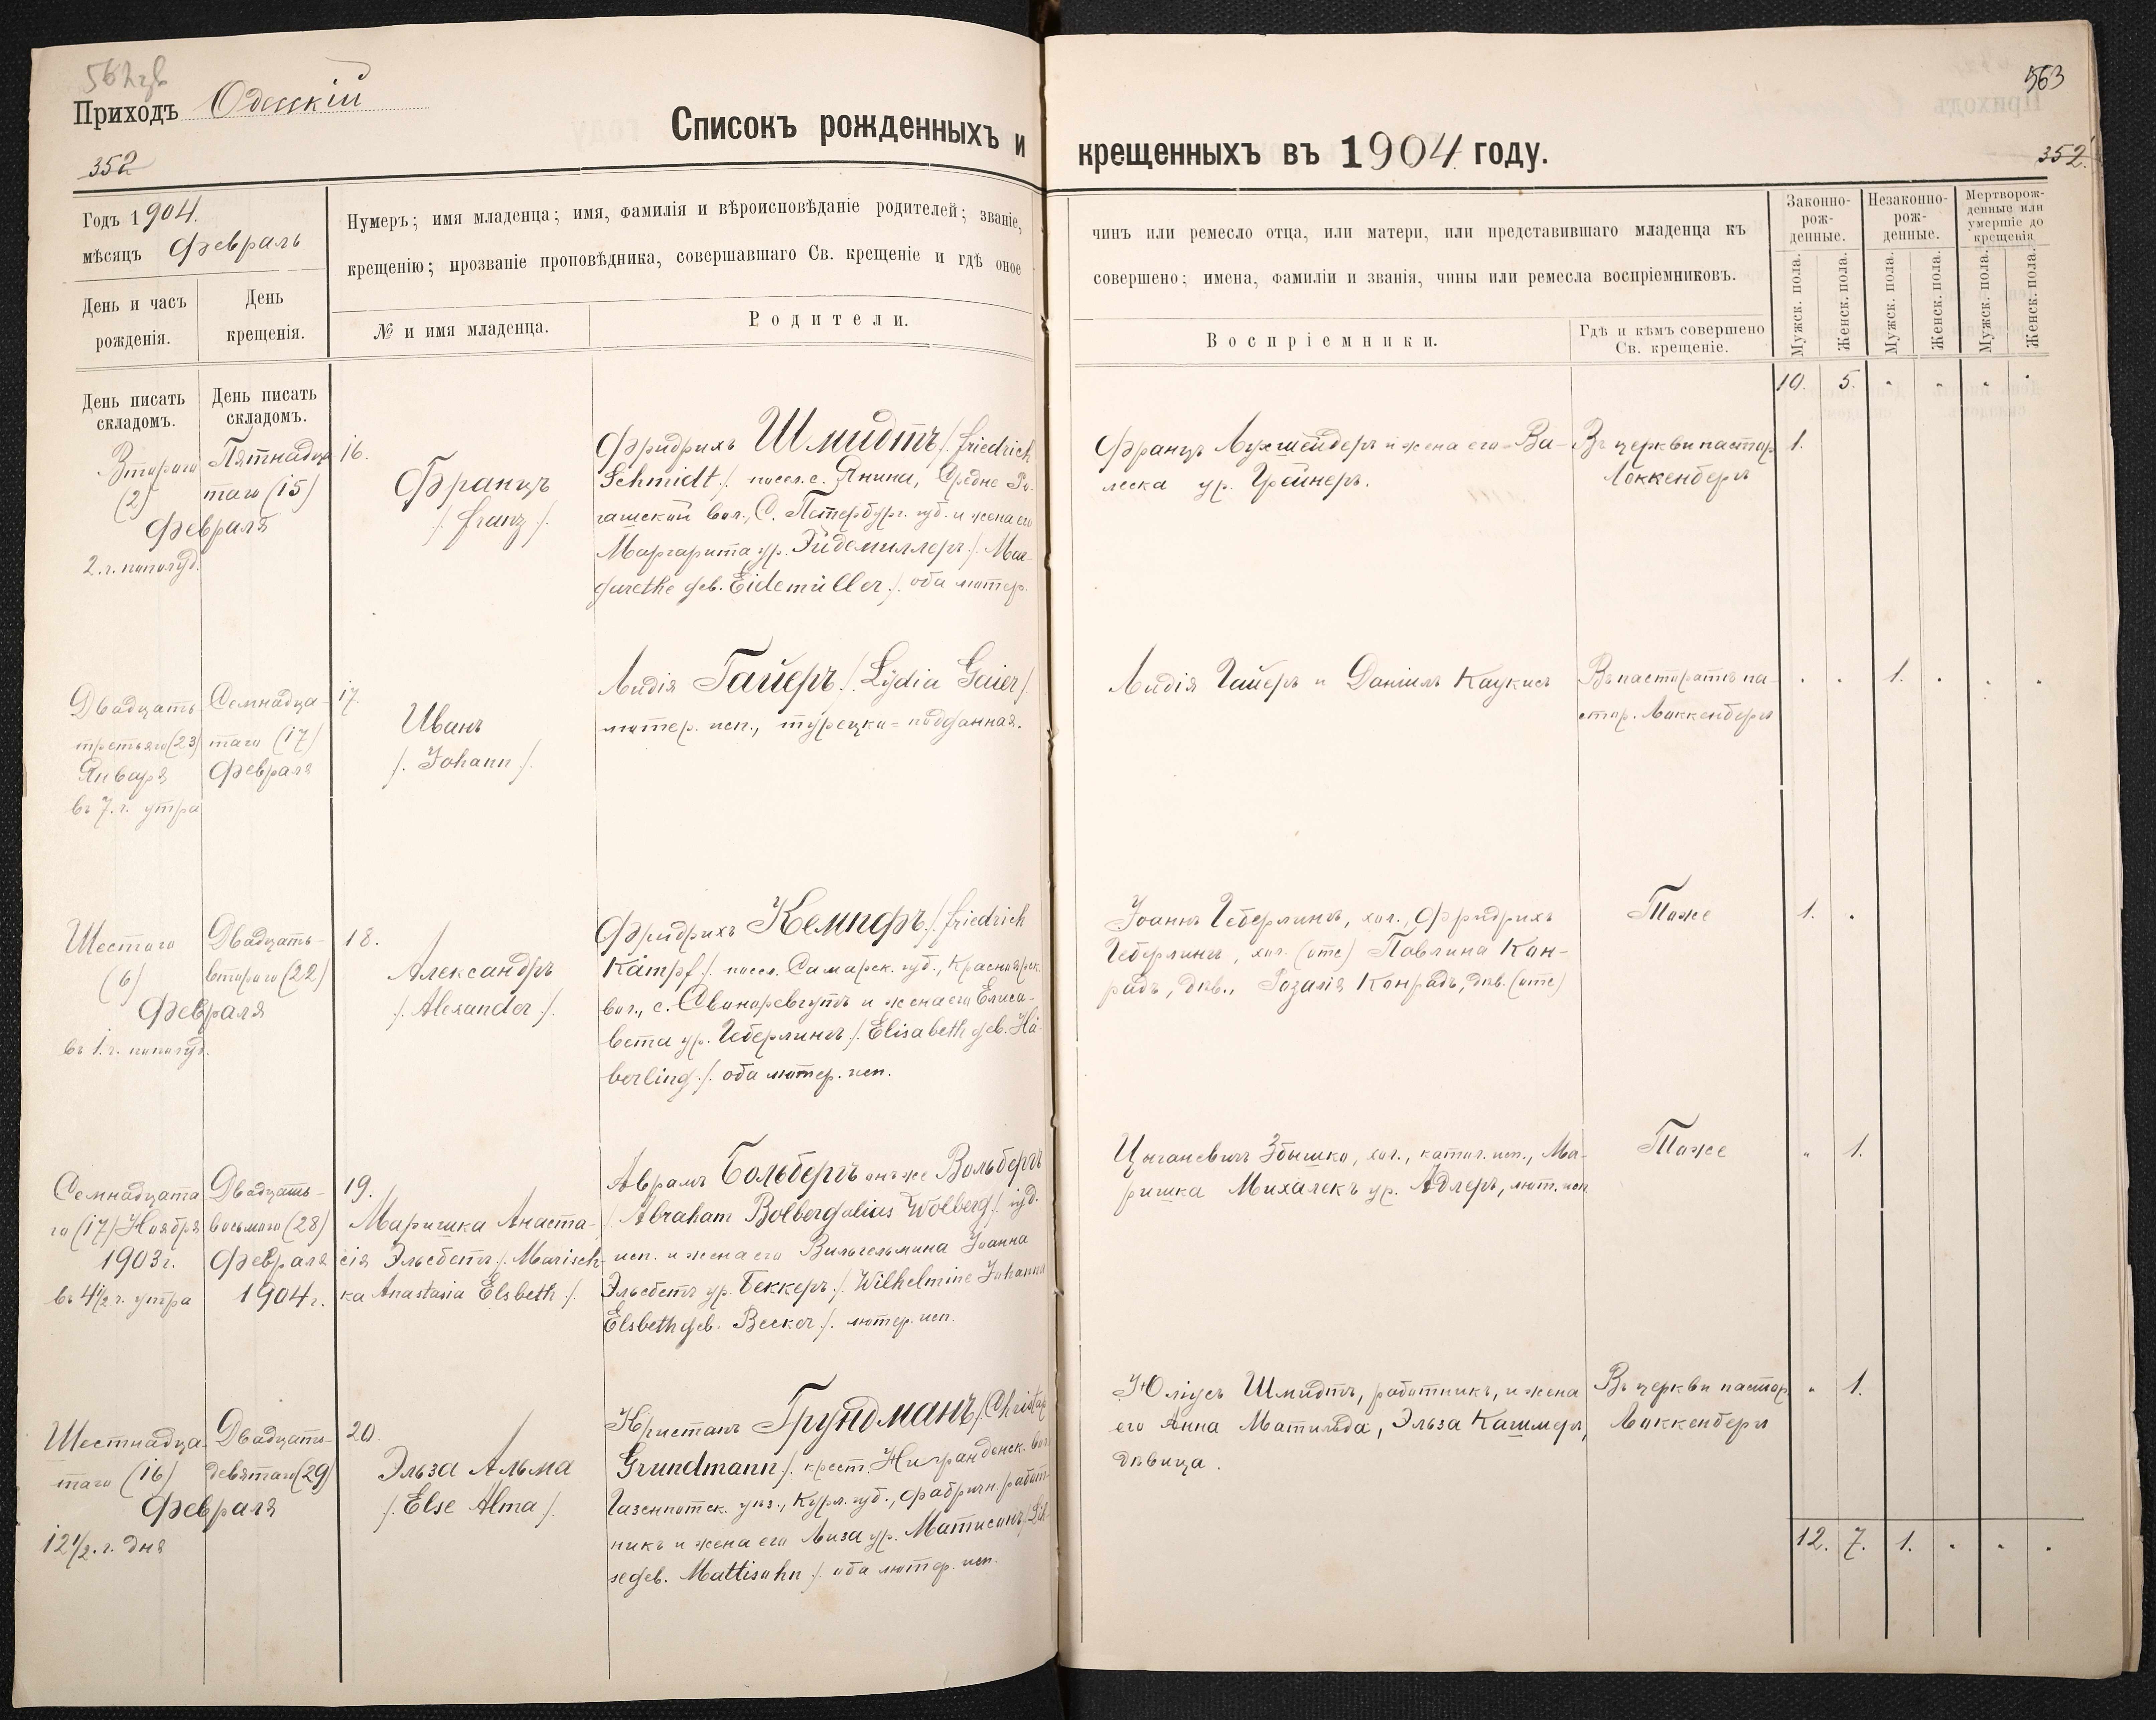 562
Приходъ Одесскій
352
Списокъ рожденныхъ и
Годъ 1904.
мѣсяцъ Февраль
Нумеръ; имя младенца; имя, фамилія и вѣроисповѣданіе родителей; званіе,
крещенію; прозваніе проповѣдника, совершавшаго Св. крещеніе и гдѣ оное
День и часъ
рожденія.
День
крещенія.
№ и имя младенца.
Родители.
День писать
складомъ.
День писать
складомъ.
Второго
(2)
Февраля
2. ч. пополуд.
Пятнадца
таго (15)
16.
Францъ
/. Franz /.
Фридрихъ Шмидтъ /. Friedrich
Schmidt /. посел. с. Янина, Средне Ро-
гатской вол., С. Петербург. губ. и жена его
Маргарита ур. Эйдемиллеръ /. Mar-
garethe geb. Eidemüller /. оба лютер.
Двадцать
третьяго (23)
Января
въ 7. ч. утра
Семнадца-
таго (17)
Февраля
17.
Иванъ
/. Johann /.
Лидія Гайеръ /. Lydia Geier /
лютер. исп., турецко-подданная.
Шестого
(6)
Февраля
въ 1. ч. пополуд.
Двадцать-
второго (22)
18.
Александръ
/. Alexander /.
Фридрихъ Кемпфъ /. Friedrich
Kämpf /. посел. Самарск. губ., Красноярск.
вол., с. и жена его Елиса-
вета ур. Геберлингъ /. Elisabeth geb. Hä-
berling /. оба лютер. исп.
Семнадцата
го (17) Ноября
1903 г.
въ 4½ ч. утра
Двадцать-
восьмого (28)
Февраля
1904 г.
19.
Маришка Анаста-
сія Эльсбетъ /. Marisch-
ka Anastasia Elsbeth /.
Аврамъ Больбергъ онъ же Вольбергъ
/. Abraham Bolberg alias Wolberg /. іуд.
исп. и жена его Вильгельмина Іоанна
Эльсбетъ ур. Беккеръ /. Wilhelmine Johanna
Elsbeth geb. Becker /. лютер. исп.
Шестнадца
таго (16)
Февраля
12½ ч. дня
Двадцать-
девятаго (29)
20.
Эльза Альма
/. Else Alma /.
Христапъ Грундманъ /. Christap
Grundmann /. крест. вол.
Газенпотск. уѣз., Курл. губ., фабричн. работ-
никъ и жена его Лиза ур. Матисонъ /. Li-
se geb. Mattisohn /. оба лютер. исп.
563
крещенныхъ въ 1904 году.
352.
чинъ или ремесло отца, или матери, или представившаго младенца къ
совершено; имена, фамиліи и званія, чины или ремесла воспріемниковъ.
Воспріемники.
Гдѣ и кѣмъ совершено
Св. крещеніе.
Законно-
рож-
денные.
Незаконно-
рож-
денные.
Мертворож-
денные или
умершіе до
крещенія
Мужск. пола.
Женск. пола.
Мужск. пола.
Женск. пола.
Мужск. пола.
Женск. пола.
10. 5. . . . .
Францъ и жена его Ва-
леска ур. Грейнеръ.
Въ церкви пастор
Локкенбергъ
1.
Лидія Гайеръ и Даніилъ Каукисъ
Въ пасторатѣ па-
стор. Локкенбергъ
. . 1. . . .
Іоаннъ Геберлингъ, хол., Фридрихъ
Геберлингъ, хол. (отс) Павлина Кон-
радъ, дѣв., Розалія Конрадъ, дѣв. (отс)
Тоже
1. .
Цыганевичъ Збышко, хол., катол. исп., Ма-
ришка Михалекъ ур. Адлеръ, лют. исп
Тоже
" 1.
Юліусъ Шмидтъ, работникъ, и жена
его Анна Матильда, Эльза Кашмеръ,
дѣвица.
Въ церкви пастор
Локкенбергъ
" 1.
12. 7. 1. . . .